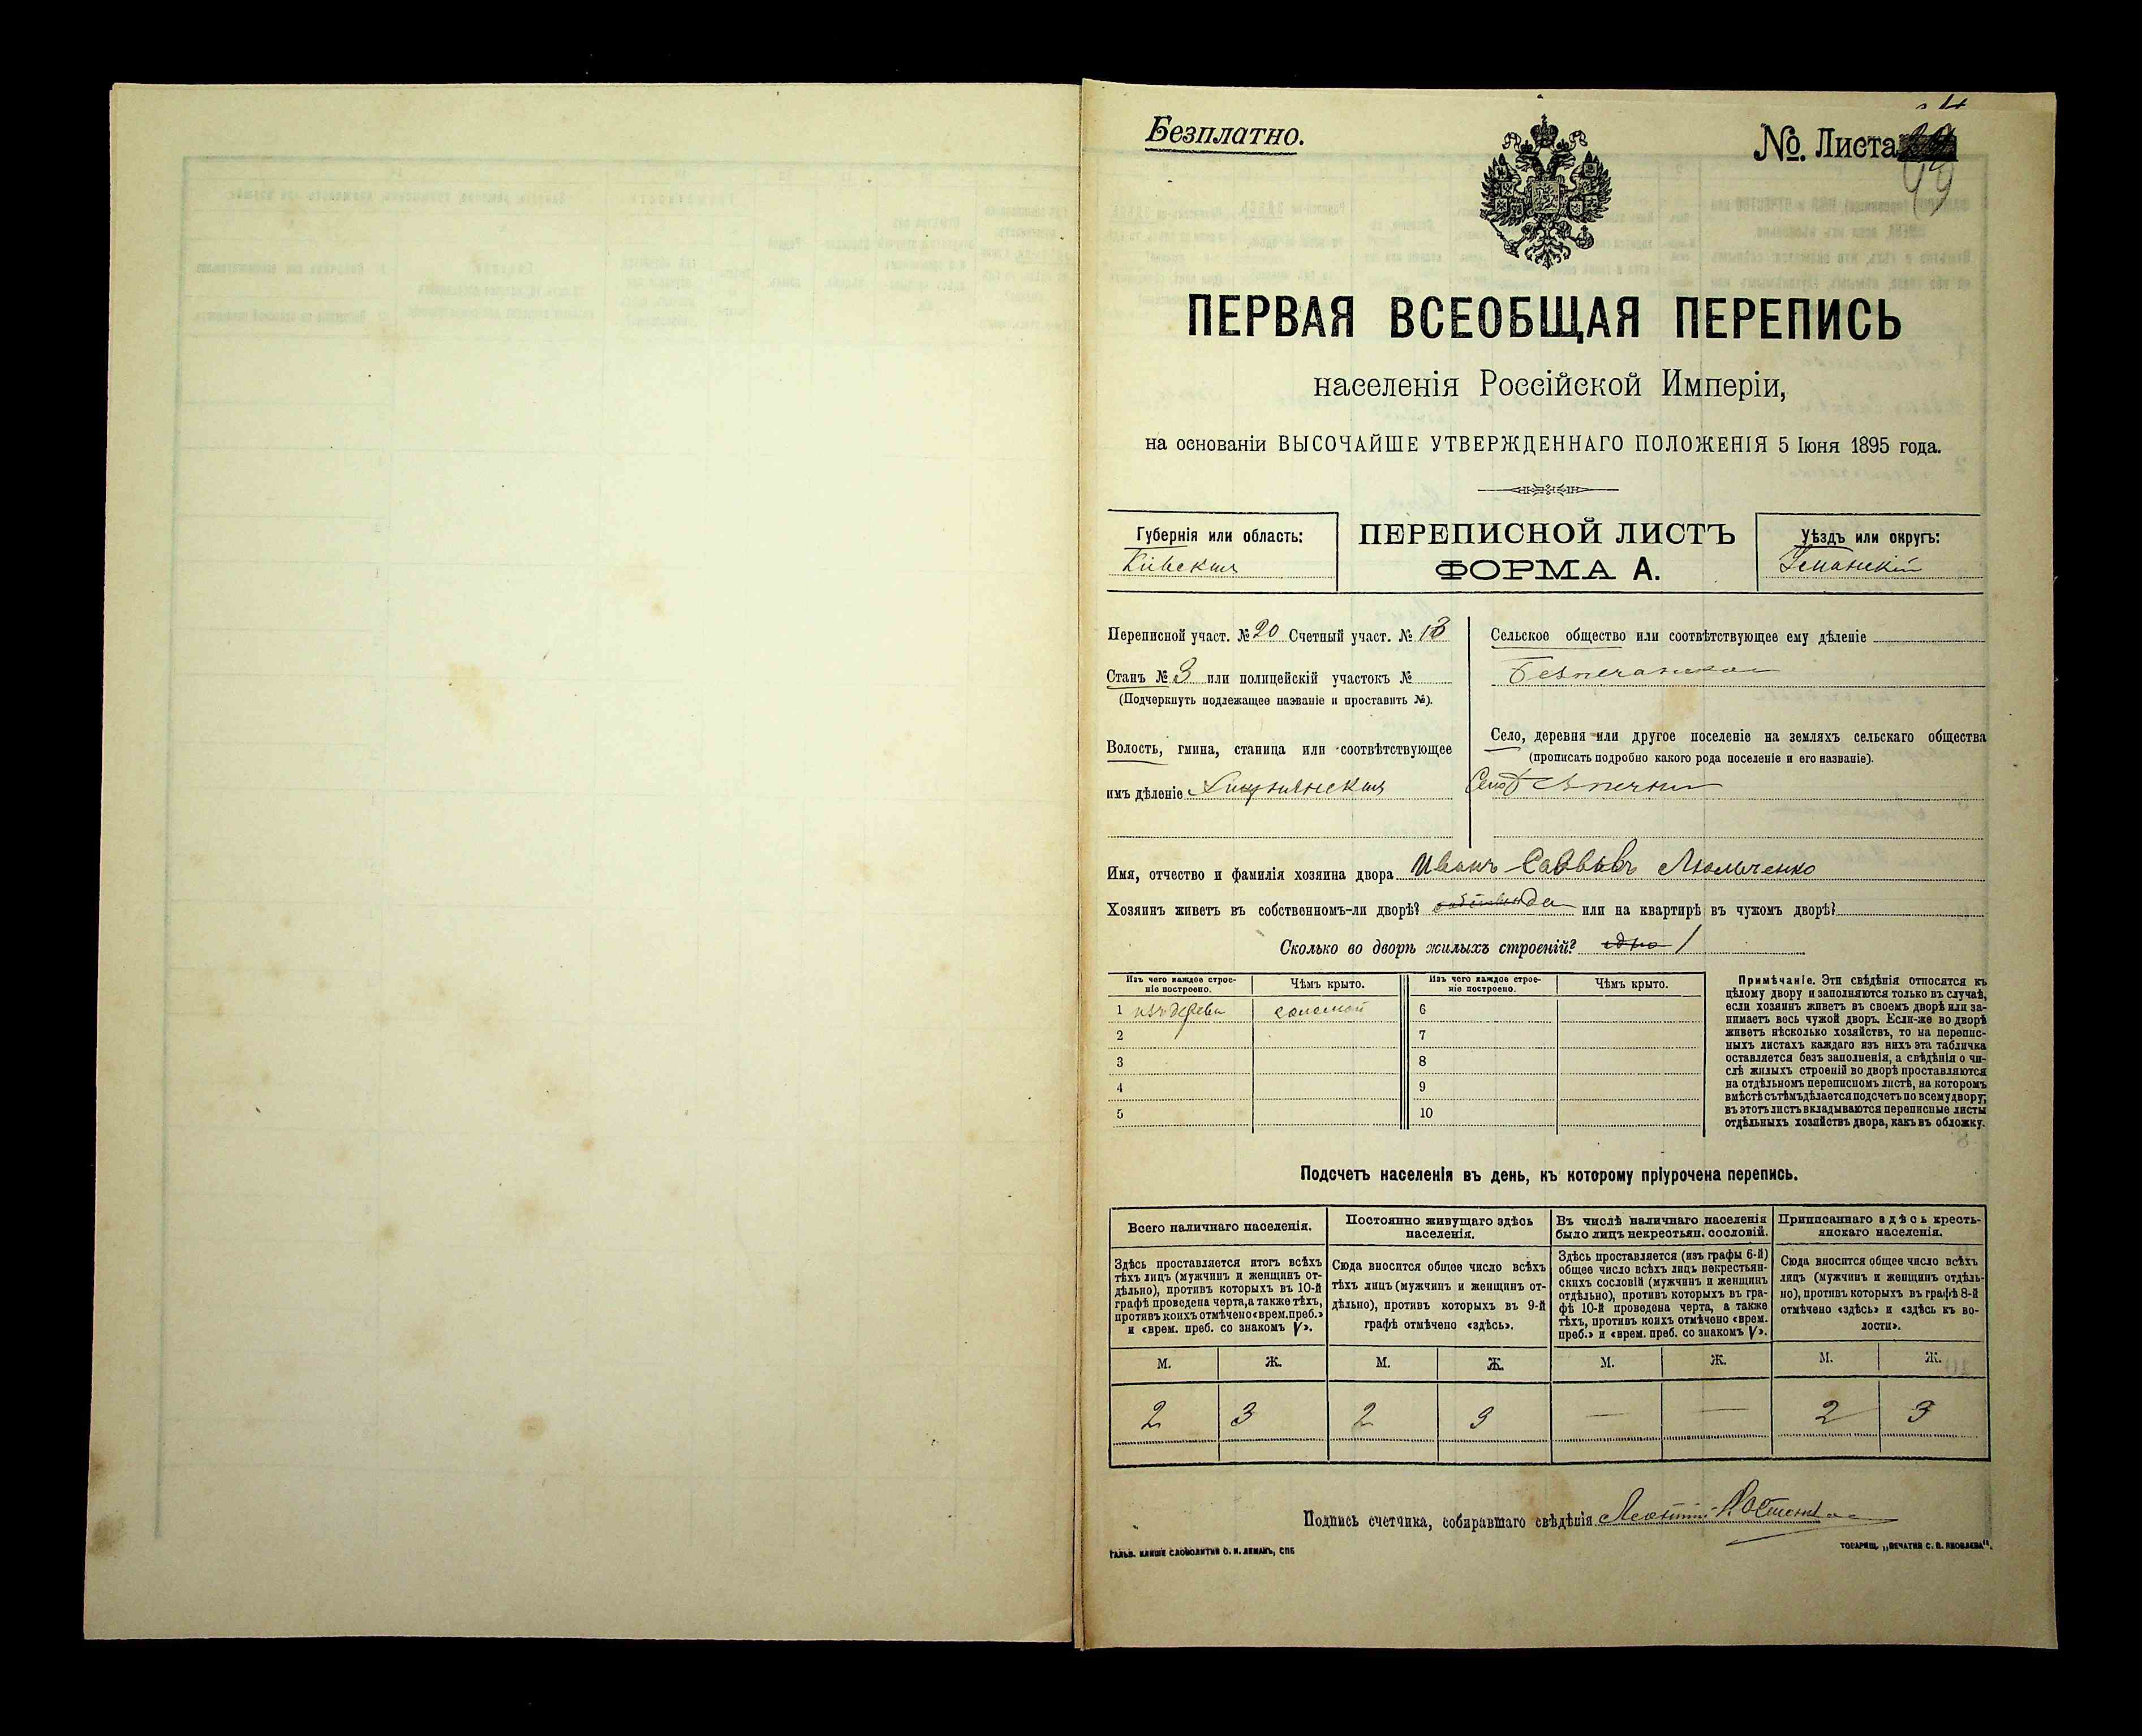 Безплатно.
№. Листа
ПЕРВАЯ ВСЕОБЩАЯ ПЕРЕПИСЬ
населенія Россійской Имперіи,
на основаніи ВЫСОЧАЙШЕ УТВЕРЖДЕННАГО ПОЛОЖЕНІЯ 5 Іюня 1895 года.
Губернія или область:
Кіевская
ПЕРЕПИСНОЙ ЛИСТЪ
ФОРМА А.
Уѣздъ или округъ:
Уманскій
Переписной участ. № 20 Счетный участ. № 13
Станъ № 3 или полицейскій участокъ №
(Подчеркнуть подлежащее названіе и проставить №).
Волость, гмина, станица или соотвѣтствующее
имъ дѣленіе
Сельское общество или соотвѣтствующее ему дѣленіе
Безпечанское
Село, деревня или другое поселеніе на земляхъ сельскаго общества
(прописать подробно какого рода поселеніе и его названіе).
Село
Имя, отчество и фамилія хозяина двора Иванъ Саввовъ
Хозяинъ живетъ въ собственномъ-ли дворѣ? да или на квартирѣ въ чужомъ дворѣ?
Сколько во дворѣ жилыхъ строеній? одно 1
Изъ чего каждое строе-
ніе построено.
Чѣмъ крыто.
Изъ чего каждое строе-
ніе построено.
Чѣмъ крыто.
1 изъ дерева соломой 6
2 7
3 8
4 9
5 10
Примѣчаніе. Эти свѣдѣнія относятся къ
цѣлому двору и заполняются только въ случаѣ,
если хозяинъ живетъ въ своемъ дворѣ или за-
нимаетъ весь чужой дворъ. Если-же во дворѣ
живетъ нѣсколько хозяйствъ, то на перепис-
ныхъ листахъ каждаго изъ нихъ эта табличка
оставляется безъ заполненія, а свѣдѣнія о чи-
слѣ жилыхъ строеній во дворѣ проставляются
на отдѣльномъ переписномъ листѣ, на которомъ
вмѣстѣ съ тѣмъ дѣлается подсчетъ по всему двору;
въ этотъ листъ вкладываются переписные листы
отдѣльныхъ хозяйствъ двора, какъ въ обложку.
Подсчетъ населенія въ день, къ которому пріурочена перепись.
Всего наличнаго населенія.
Здѣсь проставляется итогъ всѣхъ
тѣхъ лицъ (мужчинъ и женщинъ от-
дѣльно), противъ которыхъ въ 10-й
графѣ проведена черта, а также тѣхъ,
противъ коихъ отмѣчено «врем. преб.»
и «врем. преб. со знакомъ V».
Постоянно живущаго здѣсь
населенія.
Сюда вносится общее число всѣхъ
тѣхъ лицъ (мужчинъ и женщинъ от-
дѣльно), противъ которыхъ въ 9-й
графѣ отмѣчено «здѣсь».
Въ числѣ наличнаго населенія
было лицъ некрестьян. сословій.
Здѣсь проставляется (изъ графы 6-й)
общее число всѣхъ лицъ некрестьян-
скихъ сословій (мужчинъ и женщинъ
отдѣльно), противъ которыхъ въ гра-
фѣ 10-й проведена черта, а также
тѣхъ, противъ коихъ отмѣчено «врем.
преб.» и «врем. преб. со знакомъ V».
Приписаннаго здѣсь кресть-
янскаго населенія.
Сюда вносится общее число всѣхъ
лицъ (мужчинъ и женщинъ отдѣль-
но), противъ которыхъ въ графѣ 8-й
отмѣчено «здѣсь» и «здѣсь къ во-
лости».
М. Ж. М. Ж. М. Ж. М. Ж.
2 3 2 3 — — 2 3
Подпись счетчика, собиравшаго свѣдѣнія
ГАЛЬВ. КЛИШЕ СЛОВОЛИТНИ О. И. ЛЕМАНЪ, СПБ
ТОВАРИЩ. „ПЕЧАТНЯ С. П. ЯКОВЛЕВА".